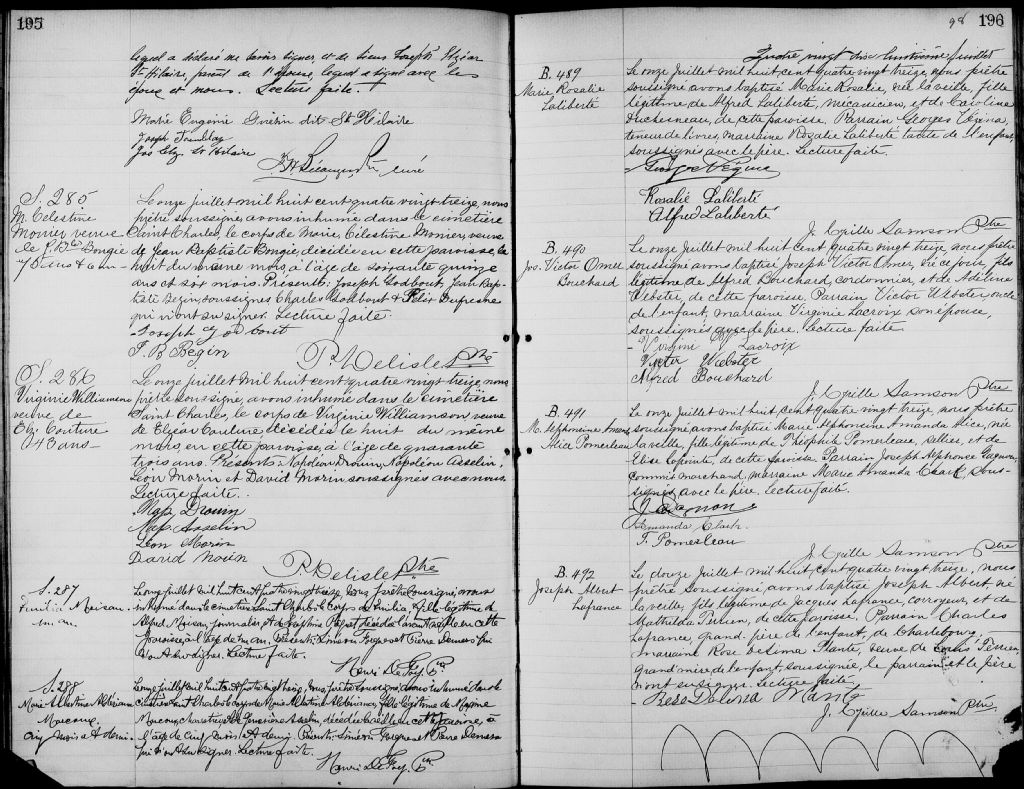 195
lequel a déclaré ne savoir signer, et de sieur Joseph Elzéar
St Hilaire, parent de l'épouse, lequel a signé avec les
époux et nous. Lecture faite.
Marie Eugenie Guérin dit St Hilaire
Joseph Tremblay
Jos Elz. St Hilaire
curé
S. 285
M. Célestine
Monier veuve
de J. Bte Bougie
75 ans & 6 m
Le onze juillet mil huit cent quatre vingt treize, nous
prêtre soussigné, avons inhumé dans le cimetière
Saint Charles, le corps de Marie, Célestine Monier, veuve
de Jean Baptiste Bougie, décédée en cette paroisse, le
huit du même mois, à l'âge de soixante quinze
ans et six mois. Présents: Joseph Godbout, Jean Bap-
tiste Begin, soussignés Charles Godbout & Félix Dufresne
qui n'ont su signer. Lecture faite
Joseph Godbout
J. B Begin
P. Delisle Ptre
S. 286
Virginie Williamson
veuve de
Elz. Couture
43 ans
Le onze juillet mil huit cent quatre vingt treize, nous
prêtre soussigné, avons inhumé dans le cimetière
Saint Charles, le corps de Virginie Williamson veuve
de Elzéar Couture, décédée le huit du même
mois, en cette paroisse, à l'âge de quarante
trois ans. Présents: Napoléon Drouin, Napoléon Asselin,
Léon Morin et David Morin, soussignés avec nous.
Lecture faite.
Nap Drouin
Nap. Asselin
Léon Morin
David Morin
P. Delisle Ptre
S. 287
Emilia Moisan
un an
Le onze juillet mil huit cent quatre vingt treize, nous prêtre soussigné, avons
inhumé dans le cimetière Saint Charles le corps de Emilia, fille légitime de
Alfred Moisan, journalier, et de Joséphine décédée l'avant veille en cette
paroisse, à l'âge de un an. Présents: Siméon Gregoire et Pierre Demers qui
n'ont su signer. Lecture faite.
Henri DeFoy, Ptre
S. 288
Marie Albertine
cinq mois et demi.
Le onze juillet mil huit cent quatre vingt treize, nous prêtre soussigné avons inhumé dans le
cimetière Saint Charles le corps de Marie Albertine fille légitime de
Asselin, décédée la veille en cette paroisse, à
l'âge de cinq mois et demi. Présents: Siméon Gregoire et Pierre Demers
qui n'ont su signer. Lecture faite.
Henri DeFoy, Ptre
98
196
Quatre vingt dix huitième feuillet
B. 489
Marie Rosalie
Laliberté
Le onze juillet mil huit cent quatre vingt treize, nous prêtre
soussigné avons baptisé Marie Rosalie, née la veille, fille
légitime de Alfred Laliberté, mécanicien, et de Caroline
Duchesneau, de cette paroisse. Parrain Georges Vézina,
teneur de livres, marraine Rosalie Laliberté tante de l'enfant,
soussignés avec le père. Lecture faite.
Georges Vézina
Rosalie Laliberté
Alfred Laliberté
J. Cyrille Samson Ptre
B. 490
Jos. Victor Omer
Bouchard
Le onze juillet mil huit cent quatre vingt treize nous prêtre
soussigné avons baptisé Joseph Victor Omer, né ce jour, fils
légitime de Alfred Bouchard, cordonnier, et de Adéline
Webster, de cette paroisse. Parrain Victor Webster, oncle
de l'enfant, marraine Virginie Lacroix son épouse,
soussignés avec le père. Lecture faite
Virginie V Lacroix
Victor Webster
Alfred Bouchard
J. Cyrille Samson Ptre
B. 491
M. Alphonsine Amanda
Alice Pomerleau
Le onze juillet mil huit cent quatre vingt treize, nous prêtre
soussigné avons baptisé Marie Alphonsine Amanda Alice, née
la veille, fille légitime de Théophile Pomerleau, sellier, et de
Elise Lapointe, de cette paroisse. Parrain Joseph Alphonse Gagnon,
commis marchand, marraine Marie Amanda Clark, sous-
signés avec le père, lecture faite.
J A Gagnon
Amanda Clark
T. Pomerleau
J. Cyrille Samson Ptre
B. 492
Joseph Albert
Lafrance
Le douze juillet mil huit cent quatre vingt treize, nous
prêtre soussigné avons baptisé Joseph Albert né
la veille, fils légitime de Jacques Lafrance, corroyeur, et de
Mathilda Perrien, de cette paroisse. Parrain Charles
Lafrance, grand-père de l'enfant, de Charlesbourg,
marraine Rose Délima Plante, veuve de Louis Perrien,
grand'mère de l'enfant, soussignée, le parrain et le père
n'ont su signer. Lecture faite.
Rose Delima Plante
J. Cyrille Samson Ptre